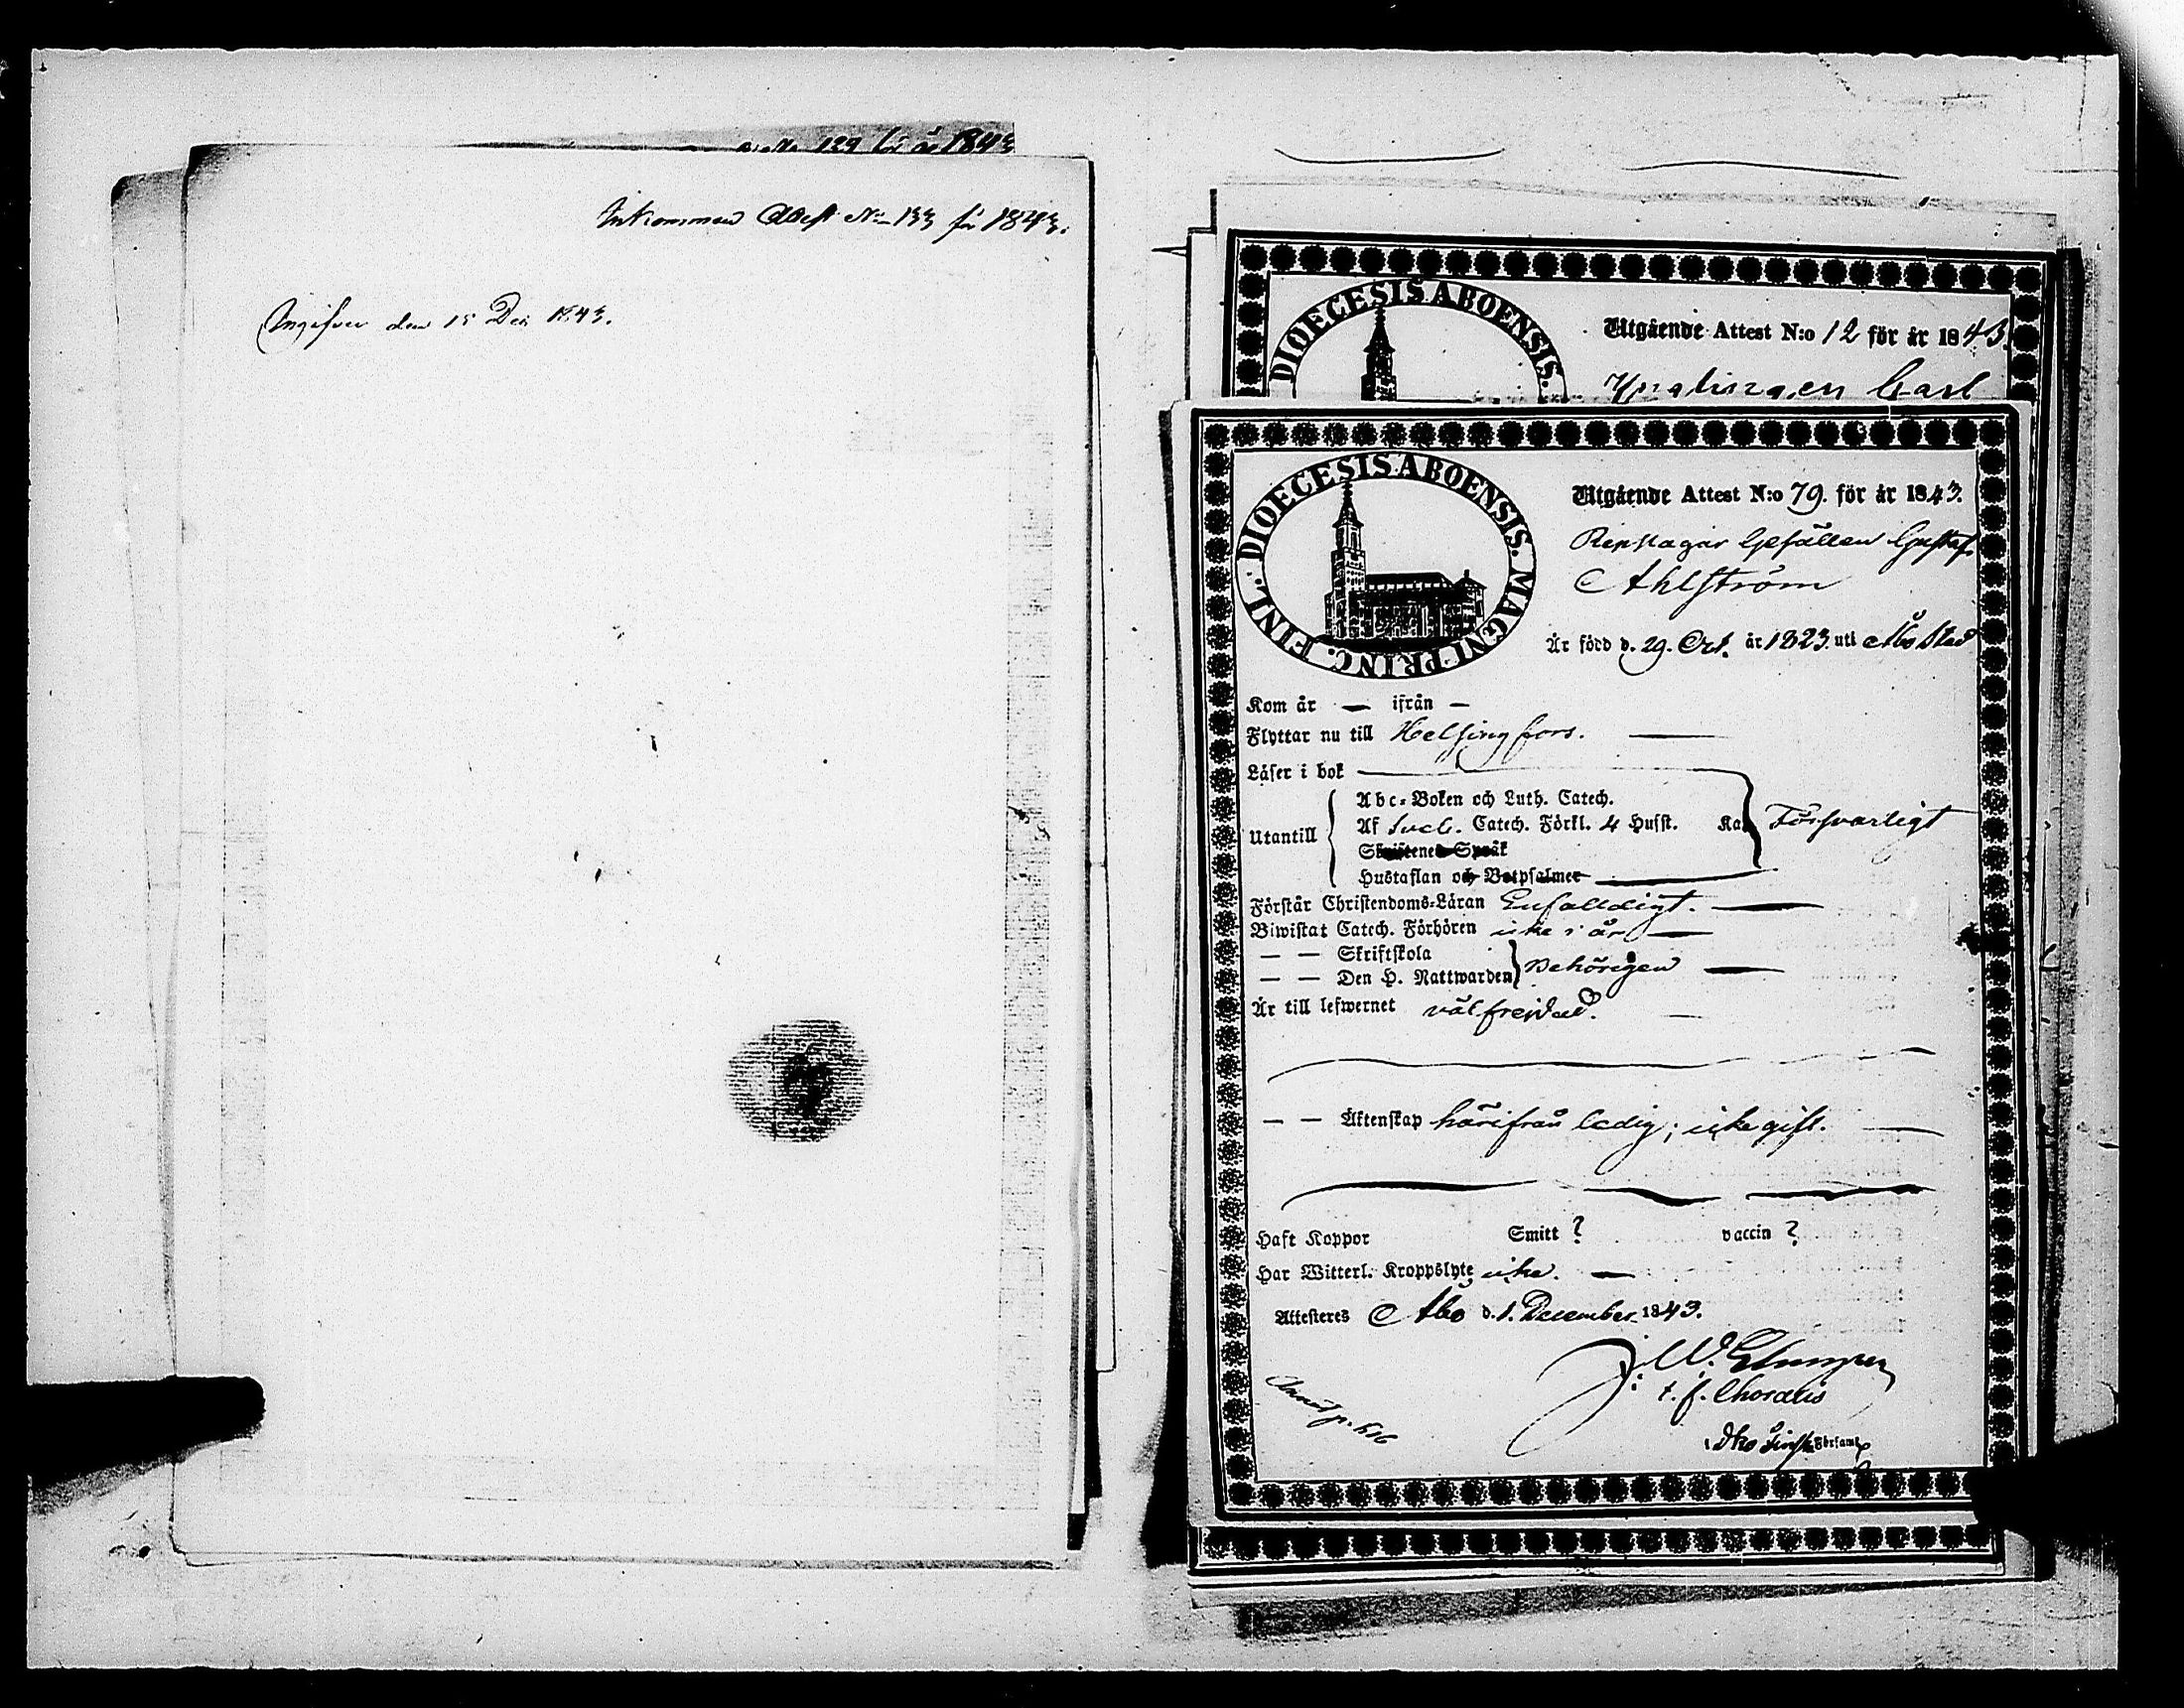 129 för år 1843
Inkommen Attest No 133 för 1843.
Ingifven den 15 Dec 1843.
DIOECESIS ABOENSIS.
Utgående Attest N:o 12 för år 1843.
Ynglingen Carl
DIOECESIS ABOENSIS. MAGNI PRINC. FINL.
Utgående Attest N:o 79. för år 1843.
Repslagar Gesällen Gustaf
Ahlström
Är född d. 29. Oct. år 1823. uti Åbo Stad
Kom år — ifrån —
Flyttar nu till Helsingfors. —
Läser i bok
Utantill
Abc-Boken och Luth. Catech.
Af Sveb. Catech. Förkl. 4 Hufst. Kan Försvarligt
Skriftenes Språk
Hustaflan och Botpsalmer
Förstår Christendoms-Läran Enfalldigt. —
Biwistat Catech. Förhören icke i år —
— — Skriftskola
— — Den H. Nattwarden Behörigen —
Är till lefwernet välfrejdad.
— — Äktenskap härifrån ledig; icke gift. —
Haft Koppor Smitt ? vaccin ?
Har Witterl. Kroppslyte icke. —
Attesteres Åbo d. 1. December 1843.
J. W.
t. f.
p. 616
Åbo Finska Församl